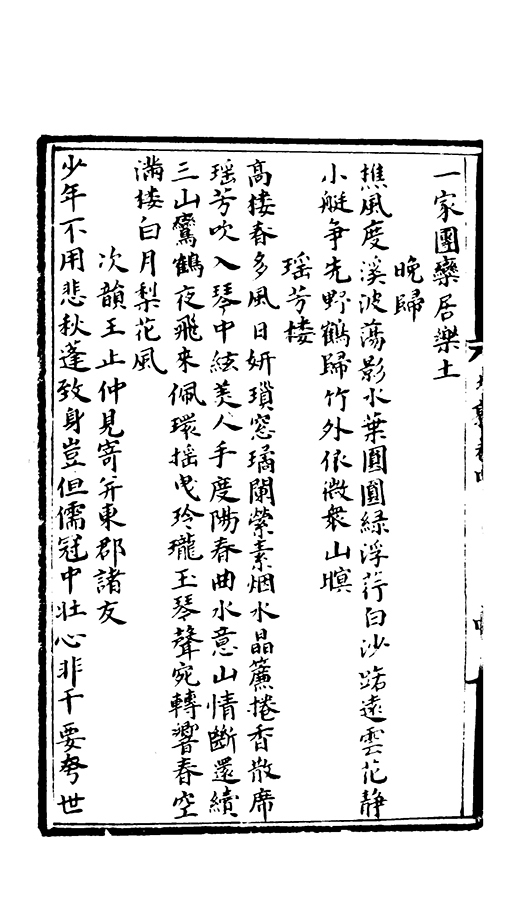 一家團欒居樂土
晚歸
樵風度溪波蕩影水葉圓圓綠浮荇白沙路遠雲花靜
小艇爭先野鶴歸竹外依微衆山暝
瑤芳樓
髙樓春多風日妍瑣窓璚闌縈素烟水晶簾捲香散席
瑶芳吹入琴中絃美人手度陽春曲水意山情斷還續
三山鸞鶴夜飛來佩環揺曳玲瓏玉琴聲宛轉響春空
滿樓白月梨花風
次韻王止仲見寄并東郡諸友
少年不用悲秋蓬致身豈但儒冠中壯心非干要弩世